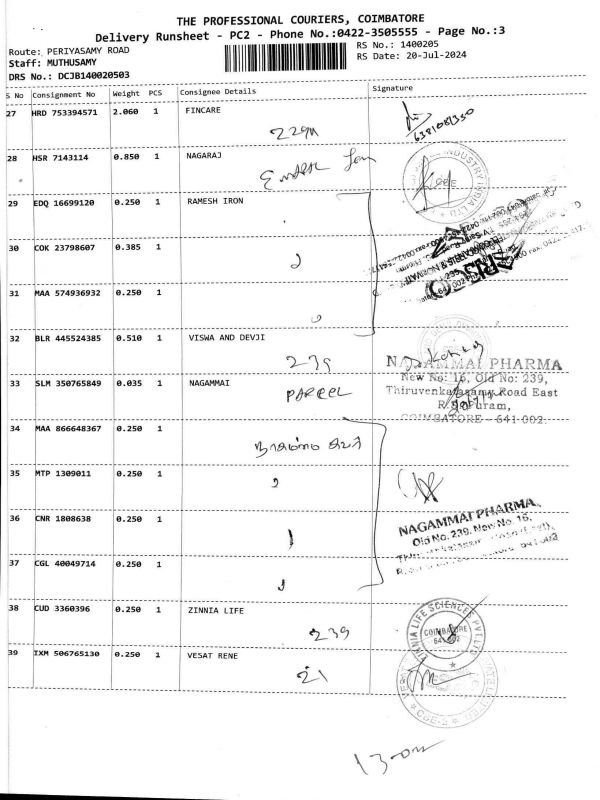 THE PROFESSIONAL COURIERS, COIMBATORE
Delivery Runsheet - PC2 - Phone No.:0422-3505555 - Page No.:3
Route: PERIYASAMY ROAD
Staff: MUTHUSAMY
DRS No.: DCJB140020503
RS No.: 1400205
RS Date: 20-Jul-2024
S No Consignment No Weight PCS Consignee Details Signature
27 HRD 753394571 2.060 1 FINCARE
6381081330
28 HSR 7143114 0.850 1 NAGARAJ
29 EDQ 16699120 0.250 1 RAMESH IRON
30 COK 23798607 0.385 1
31 MAA 574936932 0.250 1
32 BLR 445524385 0.510 1 VISWA AND DEVJI
239
33 SLM 350765849 0.035 1 NAGAMMAI
PARCEL
NAGAMMAI PHARMA
New No: 16, Old No: 239,
Thiruvenkatasamy Road East
R.S. Puram,
COIMBATORE - 641 002.
34 MAA 866648367 0.250 1
35 MTP 1309011 0.250 1
36 CNR 1808638 0.250 1
NAGAMMAI PHARMA,
Old No. 239, New No. 16,
37 CGL 40049714 0.250 1
38 CUD 3360396 0.250 1 ZINNIA LIFE
239
ZINNIA LIFE SCIENCES PVT LTD
COIMBATORE
39 IXM 506765130 0.250 1 VESAT RENE
21
CBE-2